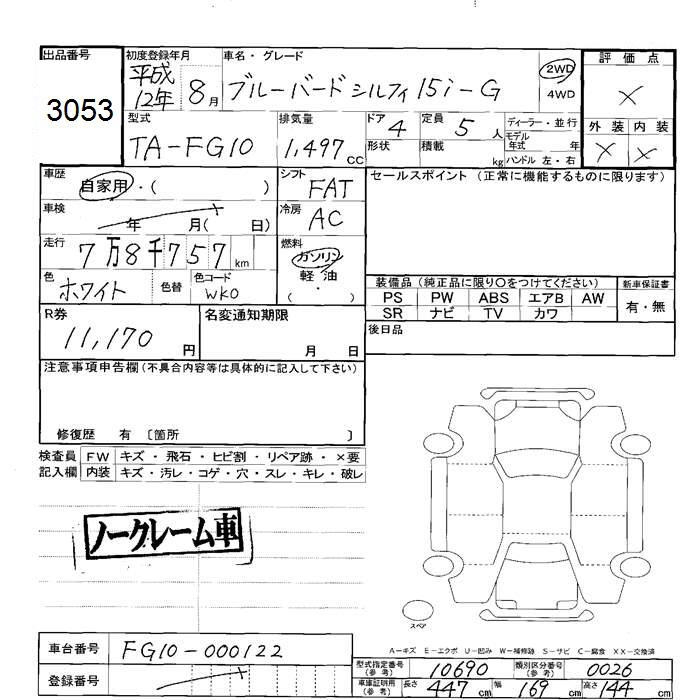 出品番号
3053
初度登録年月
平成
12年 8月
車名・グレード
ブルーバードシルフィ 15i-G
2WD
4WD
評価点
×
外装 内装
× ×
型式
TA-FG10
排気量
1,497 CC
ドア 4
形状
定員 5 人
積載 kg
ディーラー・並行
モデル年式 年
ハンドル 左・右
車歴
自家用・( )
シフト
FAT
セールスポイント (正常に機能するものに限ります)
車検
年 月( 日)
冷房
AC
走行
7万8千757km
燃料
ガソリン
軽油
・
( )
色
ホワイト
色替
色コード
WK0
装備品 (純正品に限り○をつけてください)
新車保証書
PS PW ABS エアB AW
SR ナビ TV カワ
有・無
R券
11,170 円
名変通知期限
月 日
後日品
注意事項申告欄 (不具合内容等は具体的に記入して下さい)
修復歴 有 〔箇所 〕
検査員
記入欄
FW キズ・飛石・ヒビ割・リペア跡・×要
内装 キズ・汚レ・コゲ・穴・スレ・キレ・破レ
ノークレーム車
スペア
A-キズ E-エクボ U-凹み W-補修跡 S-サビ C-腐食 XX-交換済
車台番号 FG10-000122
登録番号
型式指定番号
(参考)
10690
類別区分番号
(参考)
0026
車庫証明用
(参考)
長さ 447cm 幅 169cm 高さ 144cm